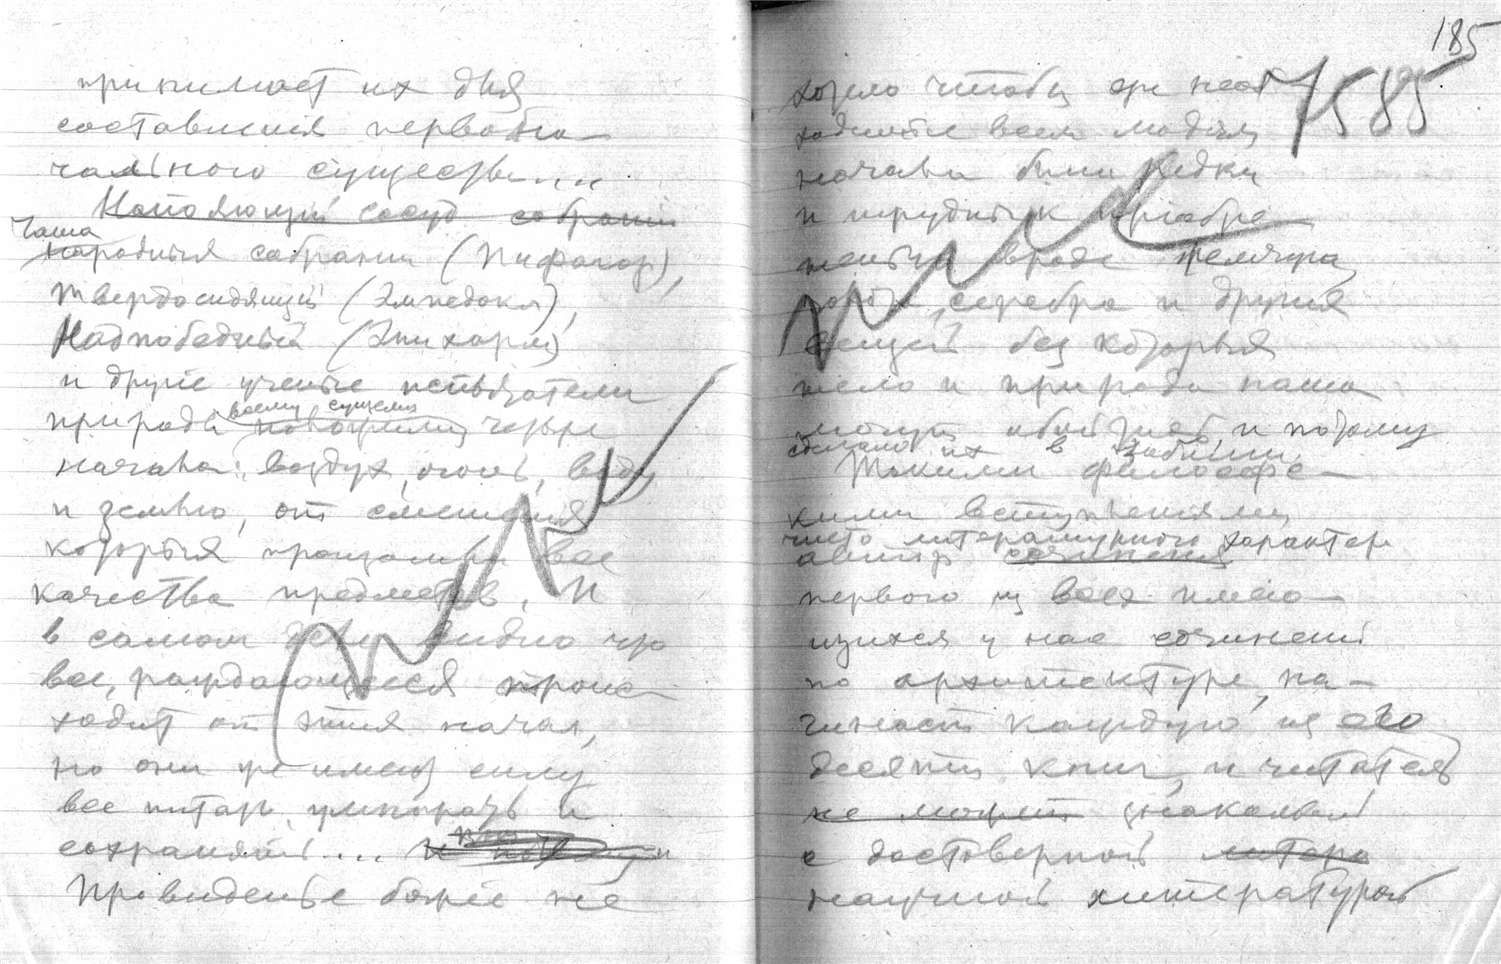 принимает их для
составления первона-
чального существа...
Напояющий сосуд собрания
Чаша
народныя собрания (Пифагор),
твердосидящий (Эмпедокл),
Надпобедный (Эпихарм)
и другие ученые испытатели
всему сущему
природы положили четыре
начала: воздух, огонь, воду
и землю, от смешения
которыя произошли все
качества предметов. И
в самом деле видно что
все, рождающееся проис-
ходит от этих начал,
но они же имеют силу
все питать, умножать и
сохранять....
Провиденье божие не
185
хотело чтобы эти необ-
7585
ходимые всем людям
начала были редки
и трудны к приобре-
тенью вроде жемчуга,
золота, серебра и других
вещей без которых
тело и природа наша
могут обойтись, и потому
сделало их в
Такими философс-
кими вступленьями
чисто литературного характера
автор сочинения
первого из всех имею-
щихся у нас сочинений
по архитектуре, на-
чинает каждую из его
десяти книг, и читатель
не может знакомый
с достоверной литера
научной литературой